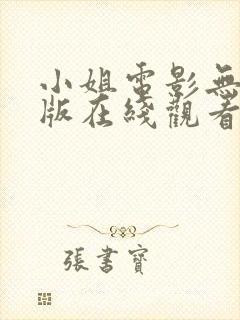 小姐電影無
版在綫觀看
張書寶